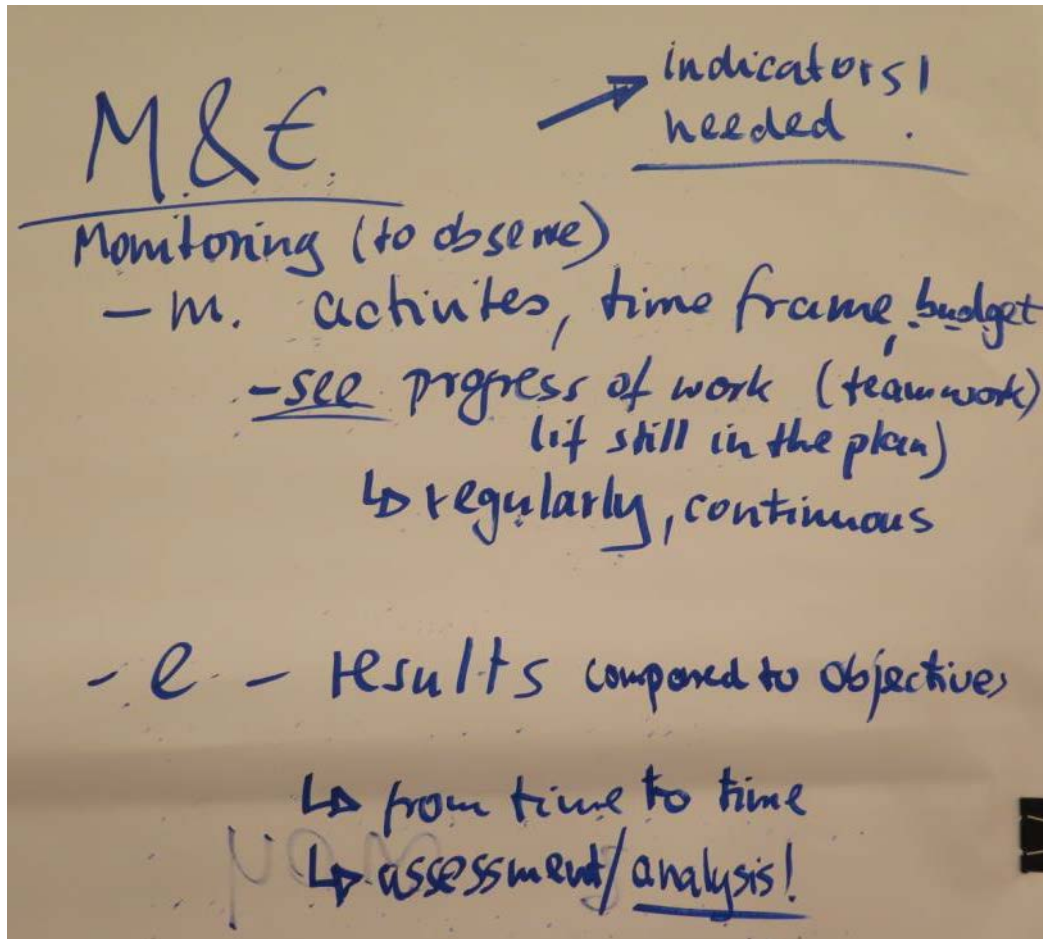 M & E
→ indicators!
needed
Monitoring (to observe)
- m. activites, time frame, budget
- see progress of work (teamwork)
(if still in the plan)
↳ regularly, continuous
- e - results compared to objectives
↳ from time to time
↳ assessment/analysis!